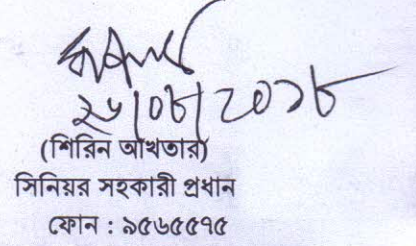 ২৬/০৮/২০১৮
(শিরিন আখতার)
সিনিয়র সহকারী প্রধান
ফোন : ৯৫৬৫৫৭৫